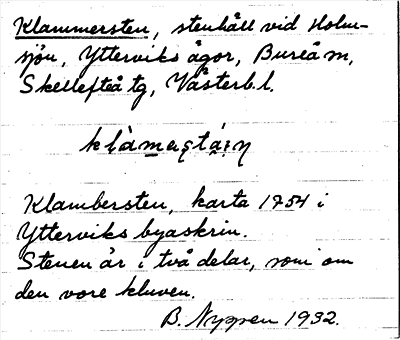 Klammersten, stenhäll vid Holm-
sjön, Ytterviks ägor, Bureå sn,
Skellefteå tg, Västerb. l.
Klambersten, karta 1754 i
Ytterviks byaskrin.
Stenen är i två delar, som om
den vore kluven.
B. Nyppen 1932.